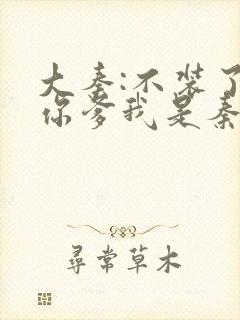 大秦:不装了
你爹我是秦
尋常草木